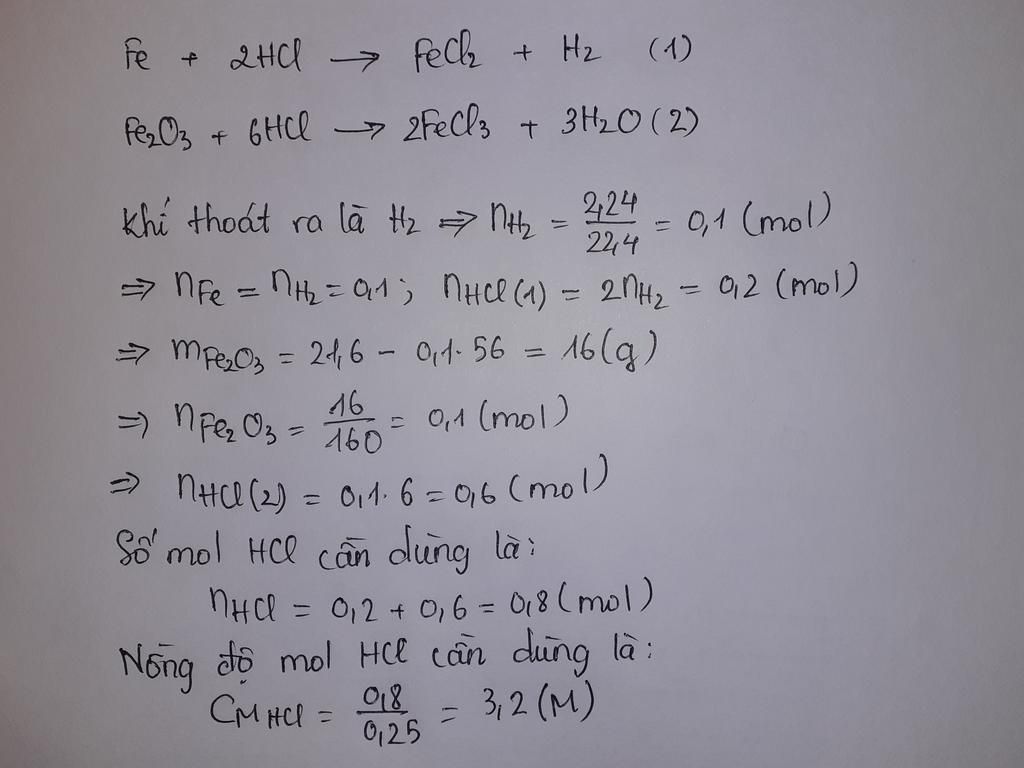 Fe + 2HCl → FeCl2 + H2 (1)
Fe2O3 + 6HCl → 2FeCl3 + 3H2O (2)
Khí thoát ra là H2 ⇒ nH2 = 2,24/22,4 = 0,1 (mol)
⇒ nFe = nH2 = 0,1; nHCl(1) = 2nH2 = 0,2 (mol)
⇒ mFe2O3 = 21,6 - 0,1.56 = 16 (g)
⇒ nFe2O3 = 16/160 = 0,1 (mol)
⇒ nHCl(2) = 0,1.6 = 0,6 (mol)
Số mol HCl cần dùng là:
nHCl = 0,2 + 0,6 = 0,8 (mol)
Nồng độ mol HCl cần dùng là:
CM HCl = 0,8/0,25 = 3,2 (M)